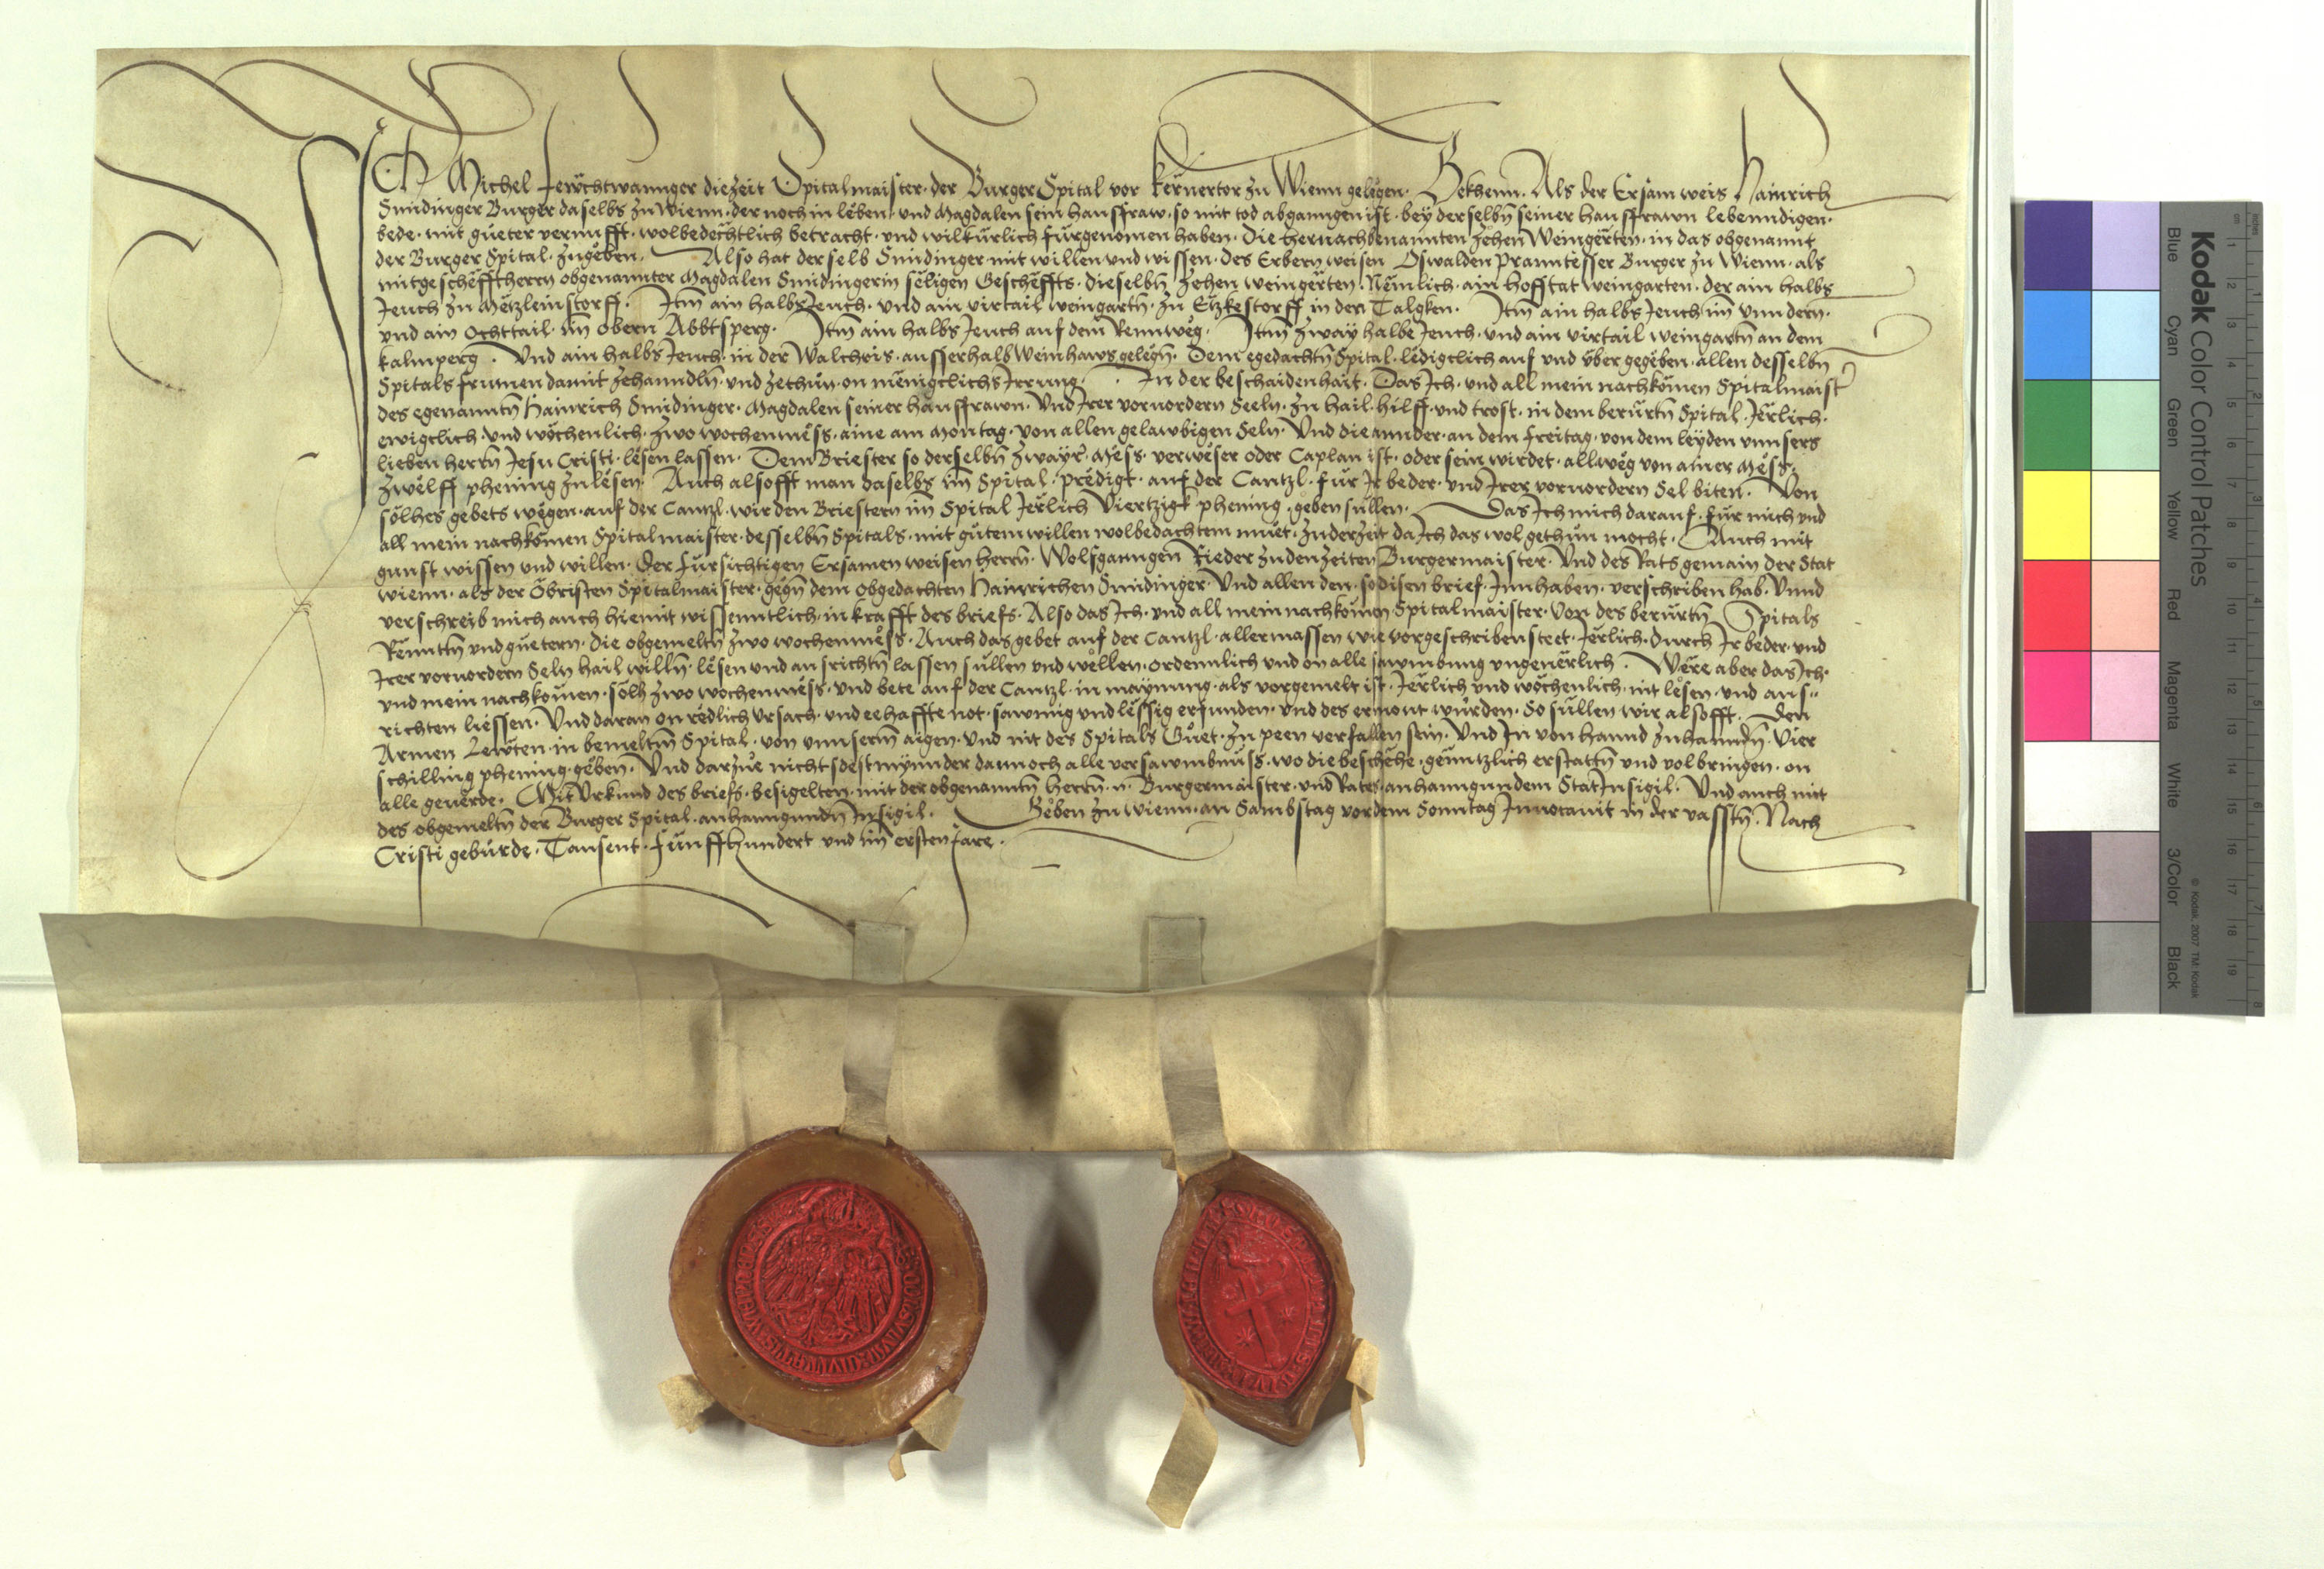 Ich Michel Fewchtwannger diezeit Spitalmaister der Burger Spital vor kernertor zu Wienn gelegen. Bekhenn. Als der Ersam weis Hainrich
Smidinger Burger daselbs zu Wienn. der noch in leben. und Magdalen sein hausfraw. so mit tod abganngen ist. bey derselbn seiner hausfrawn lebenndigen.
bede. mit gueter vernufft. wolbedechtlich betracht. und wilkurlich furgenomen haben. die hernachbenannten zehen Weingerten. in das obgenannt
der Burger Spital. zugeben. Also hat derselb Smidinger mit willen und wissen. des Erbern weisen Oswalden Pranntesser Burger zu Wienn. als
mitgeschefftherrn obgenannter Magdalen Smidingerin seligen Gescheffts. dieselbn zehen weingerten. Nemlich. ain hofstat weingarten. der ain halbs
Jeuch zu Metzleinstorff. Itm ain halbs Jeuch. und ain virtail weingartn. zu Etzkestorff in den Talgken. Itm ain halbs Jeuch im unndern.
und ain Ochttail. im obern Abbtsperg. Itm ain halbs Jeuch auf dem Rennweg. Itm zway halbe Jeuch. und ain virtail weingartn an dem
kalmperg. Und ain halbs Jeuch. in der Walchris. ausserhalb Weinhaws gelegn. Dem egedachtn Spital. ledigclich auf und uber gegeben. allen desselbn
Spitals frumen damit zehanndln. und zethun. on menigclichs Irrung. In der beschaidenhait. Das Ich. und all mein nachkomen Spitalmaister
des egenanntn Hainrich Smidinger. Magdalen seiner hausfrawn. Und Irer vorvordern Seeln. zu hail. hilff. und trost. in dem berurtn Spital. Jerlich.
ewigclich. und wochenlich. zwo wochenmess. aine am Montag. von allen gelawbigen Seln. Und die annder. an dem Freitag. von dem leyden unnsers
lieben herrn Jesu Cristi. lesen lassen. Dem Briester so derselbn zwayr. Mess. verweser oder Caplan ist. oder sein wirdet. allweg von ainer Mess.
zwelff phening zulesen. Auch alsofft man daselbs im Spital. predigt. auf der Cantzl. fur Ir beder. und Irer vorvordern Sel biten. Von
solhes gebets wegen. auf der Cantzl. wir den Briestern im Spital Jerlich Viertzigk phening. geben sullen. Das Ich mich darauf. fur mich und
all mein nachkomen Spitalmaister. desselbn Spitals. mit gutem willen wolbedachtem muet. zuderzeit da Ich das wol gethun mocht. Auch mit
gunst wissen und willen. der fursichtigen Ersamen weisen herrn. Wolfganngen Rieder zudenzeiten Burgermaister. Und des Rats gemain der Stat
wienn. als der Obristen Spitalmaister. gegn dem obgedachten Hainrichen Smidinger. Und allen den. so disen brief. Innhaben. verschriben hab. Vnnd
verschreib mich auch hiemit wissenntlich. in krafft des briefs. Also das Ich. und all mein nachkomen Spitalmaister. Von des berurtn Spitals
Renntn und guetern. die obgemeltn zwo wochenmess. Auch das gebet auf der Cantzl. allermassen wie vorgeschriben steet. Jerlich. durch Ir beder. und
Irer vorvordern Seln hail willn. lesen und ausrichtn lassen sullen und wellen. ordennlich und on alle sawmbung ungeverlich. Were aber das Ich.
und mein nachkomen. solh zwo wochenmess. und bete auf der Cantzl. in maynung. als vorgemelt ist. Jerlich und wochenlich. nit lesen. und aus-
richten liessen. Und daran on redlich ursach. und eehaffte not. sawmig und lessig erfunden. und des ermont wurden. So sullen wir alsofft. den
Armen Lewten. in bemeltm Spital. von unnserm aigen. und nit des Spitals Guet. zu peen verfallen sein. Und In von hannd zuhanndn. Vier
schilling phening. geben. Und darzue nichtsdestmynnder dannoch alle versawmbnus. wo die beschehe. genntzlich erstattn und volbringen. on
alle geuerde. Mit Urkund des briefs. besigelten. mit der obgenanntn herrn. n. Burgermaister. und Rates. anhanngundem Stat Insigil. Und auch mit
des obgemeltn der Burger Spital. anhanngundn Insigil. Geben zu Wienn. an Sambstag vor dem Sonntag Invocavit in der vasstn. Nach
Cristi geburde. Tausent. Funffhundert und im ersten Jare.
Kodak Color Control Patches
Blue
Cyan
Green
Yellow
Red
Magenta
White
3/Color
Black
© Kodak, 2007 TM: Kodak